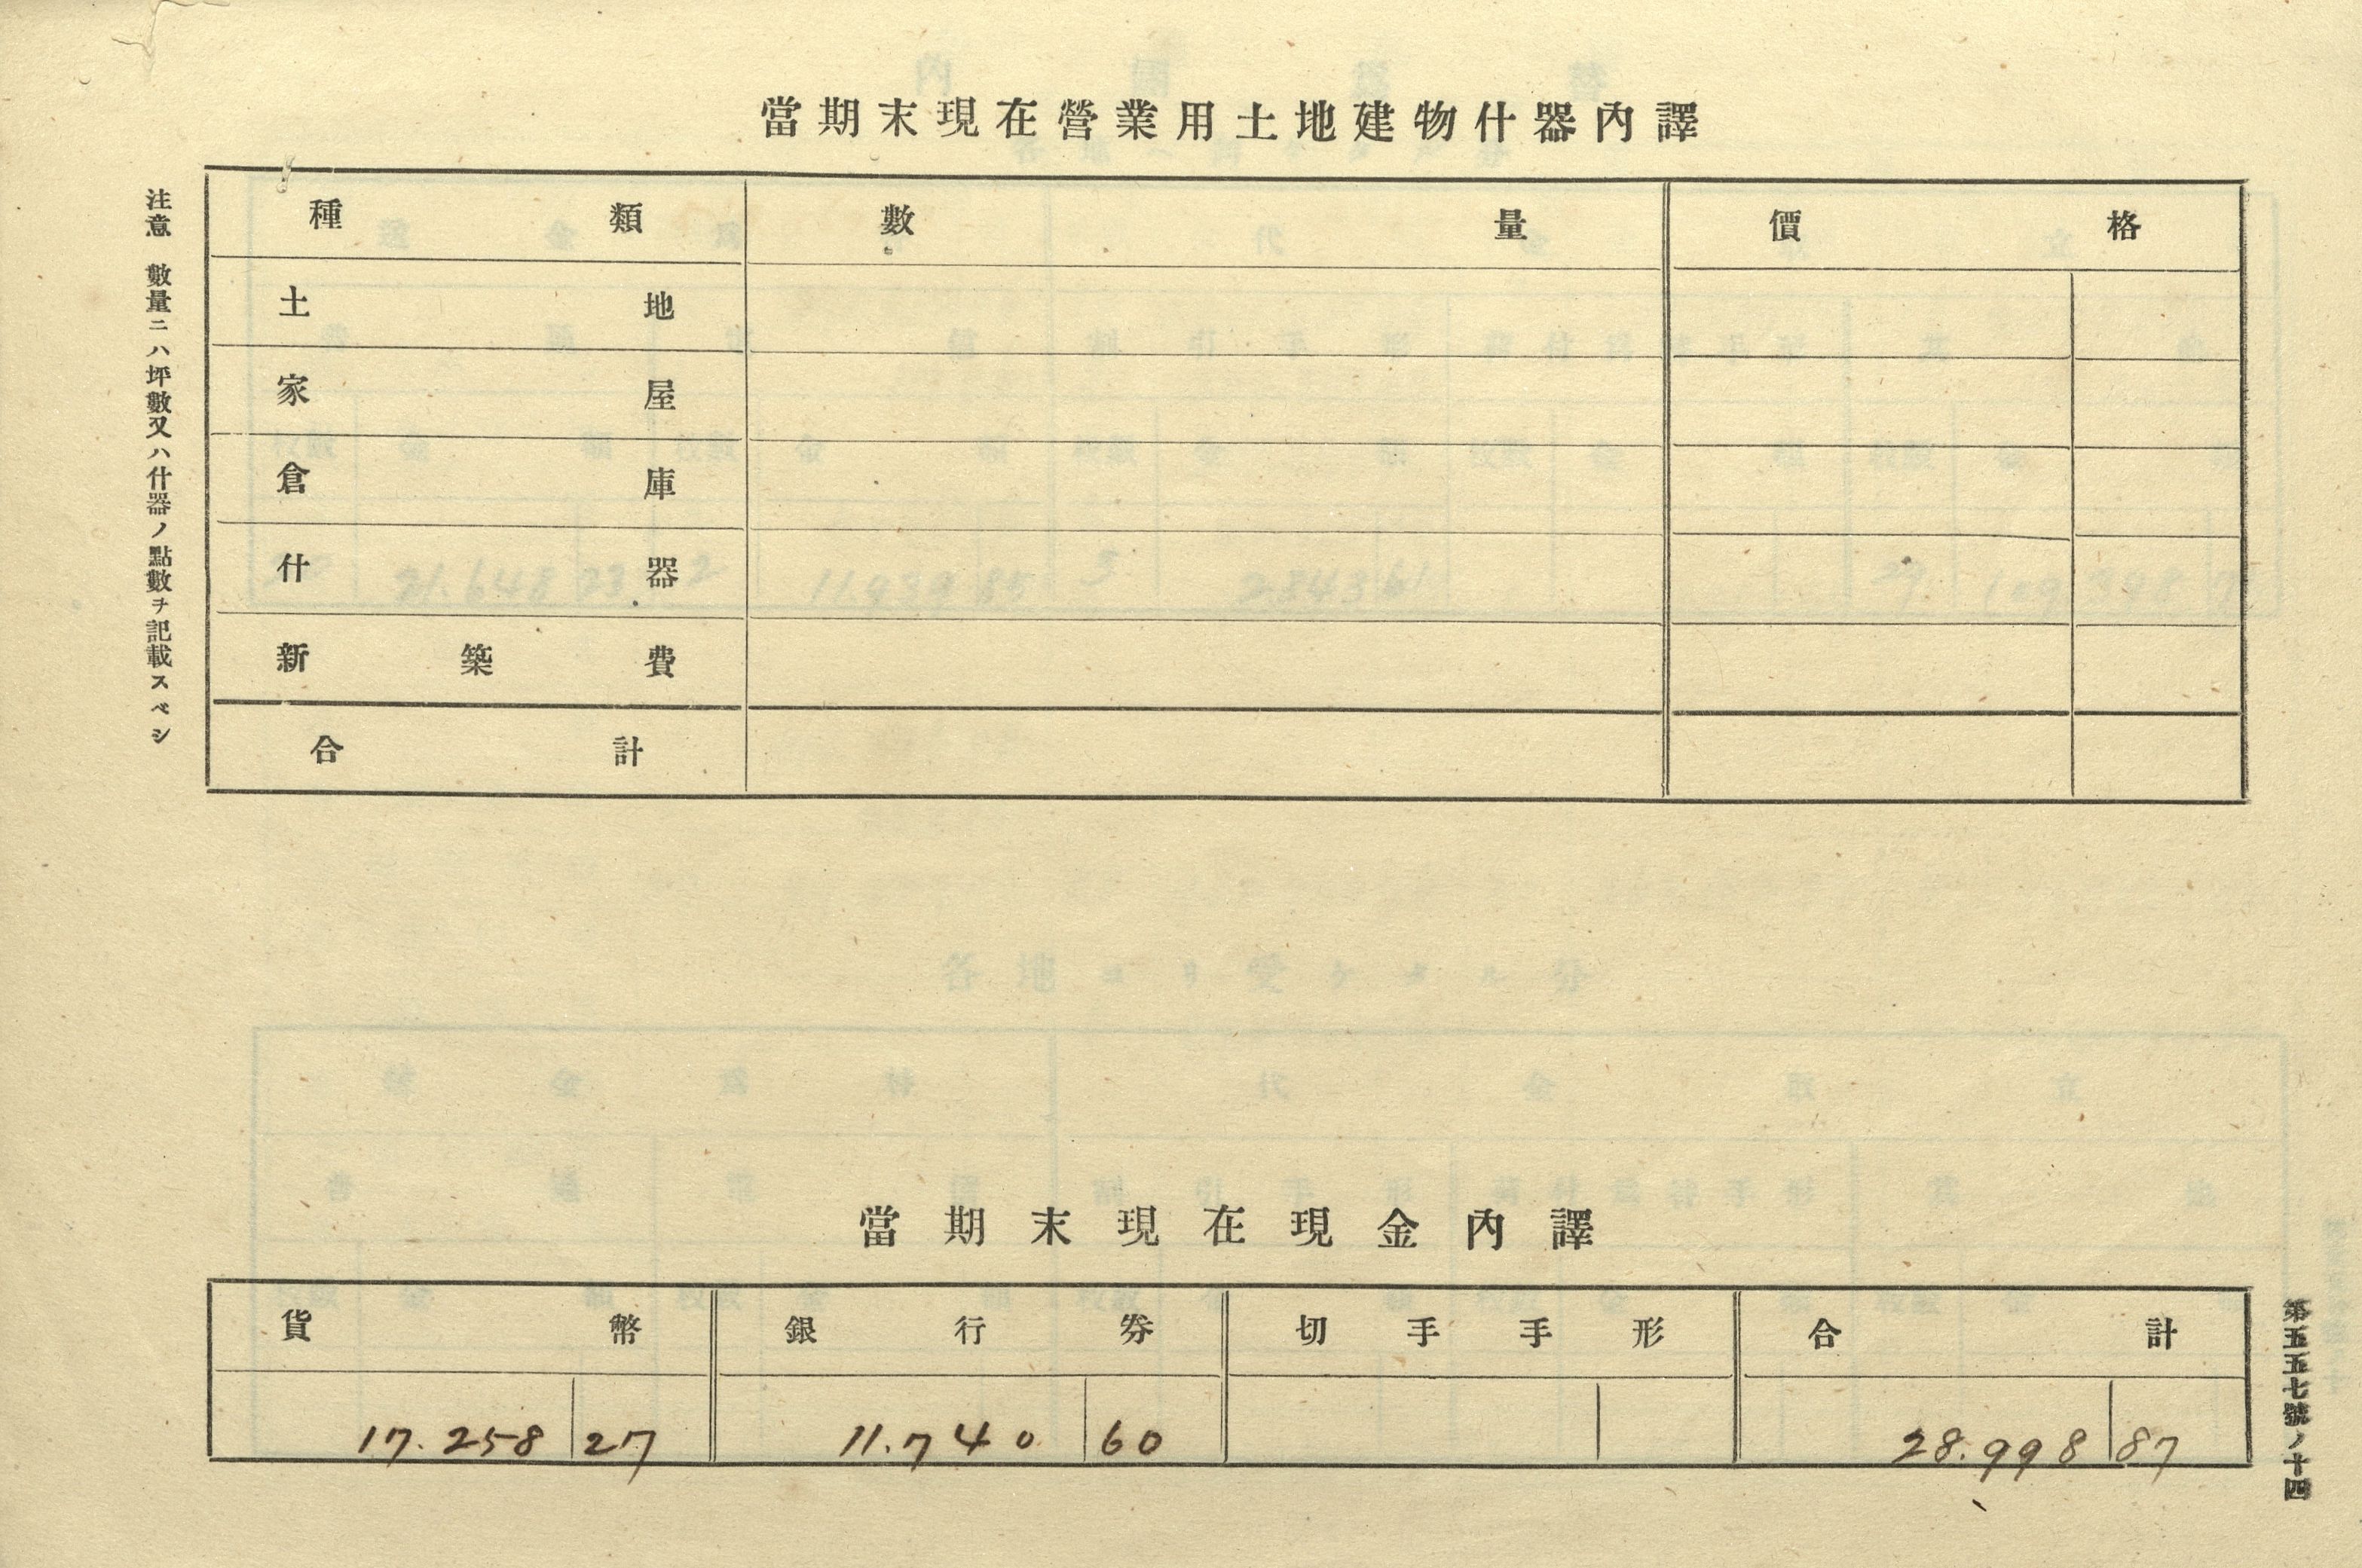 當期末現在營業用土地建物什器內譯
種類 數量 價格
土地
家屋
倉庫
什器
新築費
合計
注意 數量ニハ坪數又ハ什器ノ點數ヲ記載スベシ
當期末現在現金內譯
貨幣 銀行券 切手手形 合計
17.258 27 11.740 60 28.998 87
第五五七號ノ十四